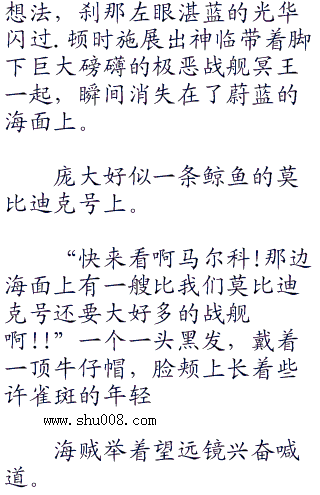 想法，刹那左眼湛蓝的光华
闪过.顿时施展出神临带着脚
下巨大磅礴的极恶战舰冥王
一起，瞬间消失在了蔚蓝的
海面上。
庞大好似一条鲸鱼的莫
比迪克号上。
“快来看啊马尔科!那边
海面上有一艘比我们莫比迪
克号还要大好多的战舰
啊!!”一个一头黑发，戴着
一顶牛仔帽，脸颊上长着些
许雀斑的年轻
www.shu008.com
海贼举着望远镜兴奋喊
道。